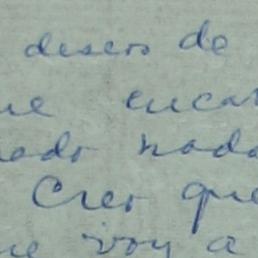 deseos de
ue encar
nado nada
Creo que
ue voy a